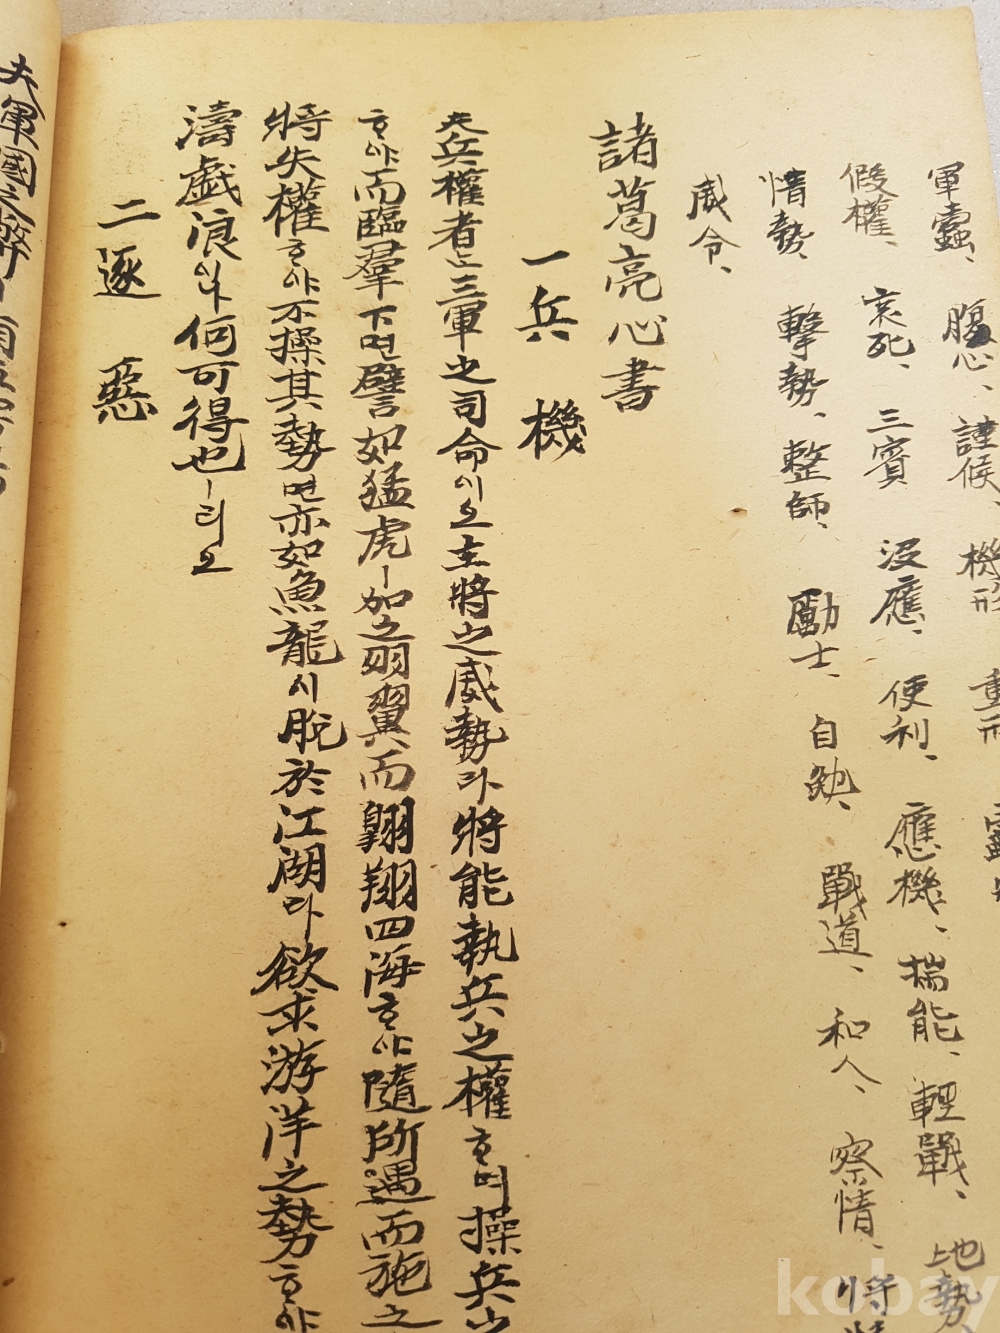 軍蠹、腹心、謹候、機形、重刑、
假權、哀死、三賓、没應、便利、應機、揣能、輕戰、地勢、
情勢、擊勢、整師、勵士、自勉、戰道、和人、察情、將
威令、
諸葛亮心書
一兵機
夫兵權者는三軍之司命이오主將之威勢라將能執兵之權하며操兵之
하야而臨羣下면譬如猛虎ㅣ加之羽翼而翶翔四海하야隨所遇而施之
將失權하야不操其勢면亦如魚龍시脫於江湖라欲求游洋之勢하야
濤戱浪이나何可得也ㅣ리오
二逐惡
夫軍國之弊
kobay